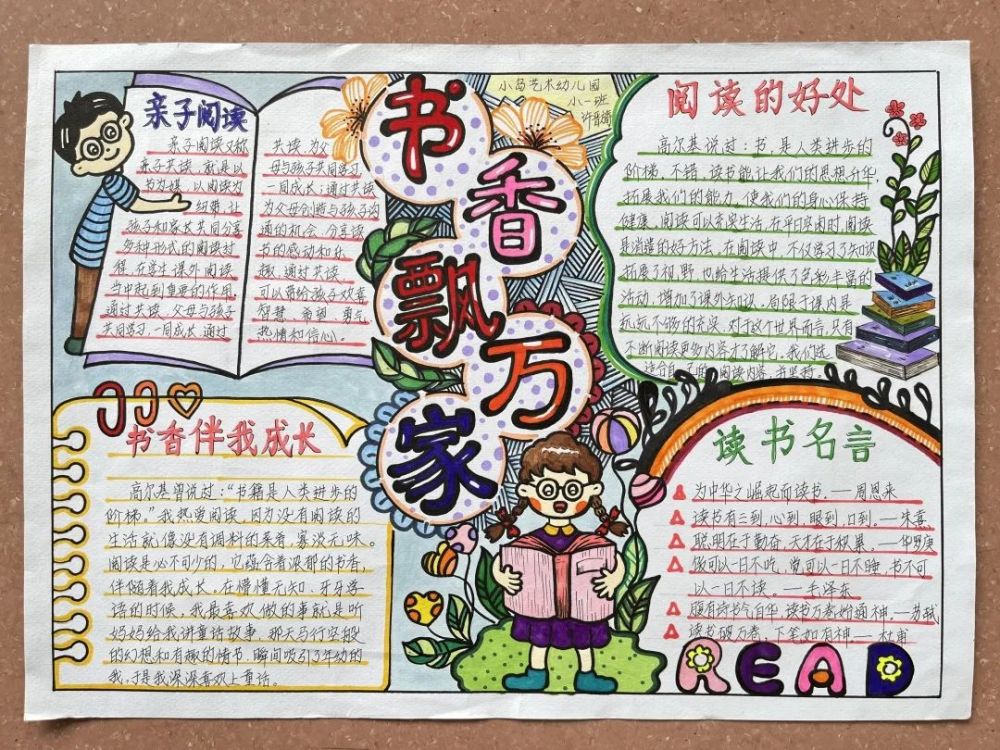 亲子阅读
亲子阅读又称
亲子共读，就是以
书为媒，以阅读为
纽带，让
孩子和家长共同分享
多种形式的阅读过
程，在学生课外阅读
当中起到重要的作用。
通过共读，父母与孩子
共同学习，一同成长；通过
共读，为父
母与孩子共同学习，
一同成长；通过共读
为父母创造与孩子沟
通的机会，分享读
书的感动和乐
趣，通过共读
可以带给孩子欢喜、
智慧、希望、勇气、
热情和信心。
书香飘万家
小岛艺术幼儿园
小一班
阅读的好处
高尔基说过：书，是人类进步的
阶梯，不错，读书能让我们的思想升华，
拓展我们的能力，使我们的身心保持
健康，阅读可以充实生活，在平日空闲时，阅读
是消遣的好方法，在阅读中，不仅学习了知识
拓展了视野，也给生活提供了色彩丰富的
活动，增加了课外知识，局限于课内是
远远不够的充实，对于这个世界而言，只有
不断阅读更多内容才了解它，我们选
适合自己的阅读内容，并坚持。
书香伴我成长
高尔基曾说过：“书籍是人类进步的
阶梯。”我热爱阅读，因为没有阅读的
生活就像没有调料的菜肴，寡淡无味。
阅读是必不可少的，它蕴含着浓郁的书香，
伴随着我成长。在懵懂无知、牙牙学
语的时候，我最喜欢做的事就是听
妈妈给我讲童话故事，那天马行空般
的幻想和有趣的情节，瞬间吸引了年幼的
我，于是我深深喜欢上童话。
读书名言
为中华之崛起而读书。——周恩来
读书有三到，心到，眼到，口到。——朱熹
聪明在于勤奋，天才在于积累。——华罗庚
饭可以一日不吃，觉可以一日不睡，书不可
以一日不读。——毛泽东
腹有诗书气自华，读书万卷始通神。——苏轼
读书破万卷，下笔如有神——杜甫
READ